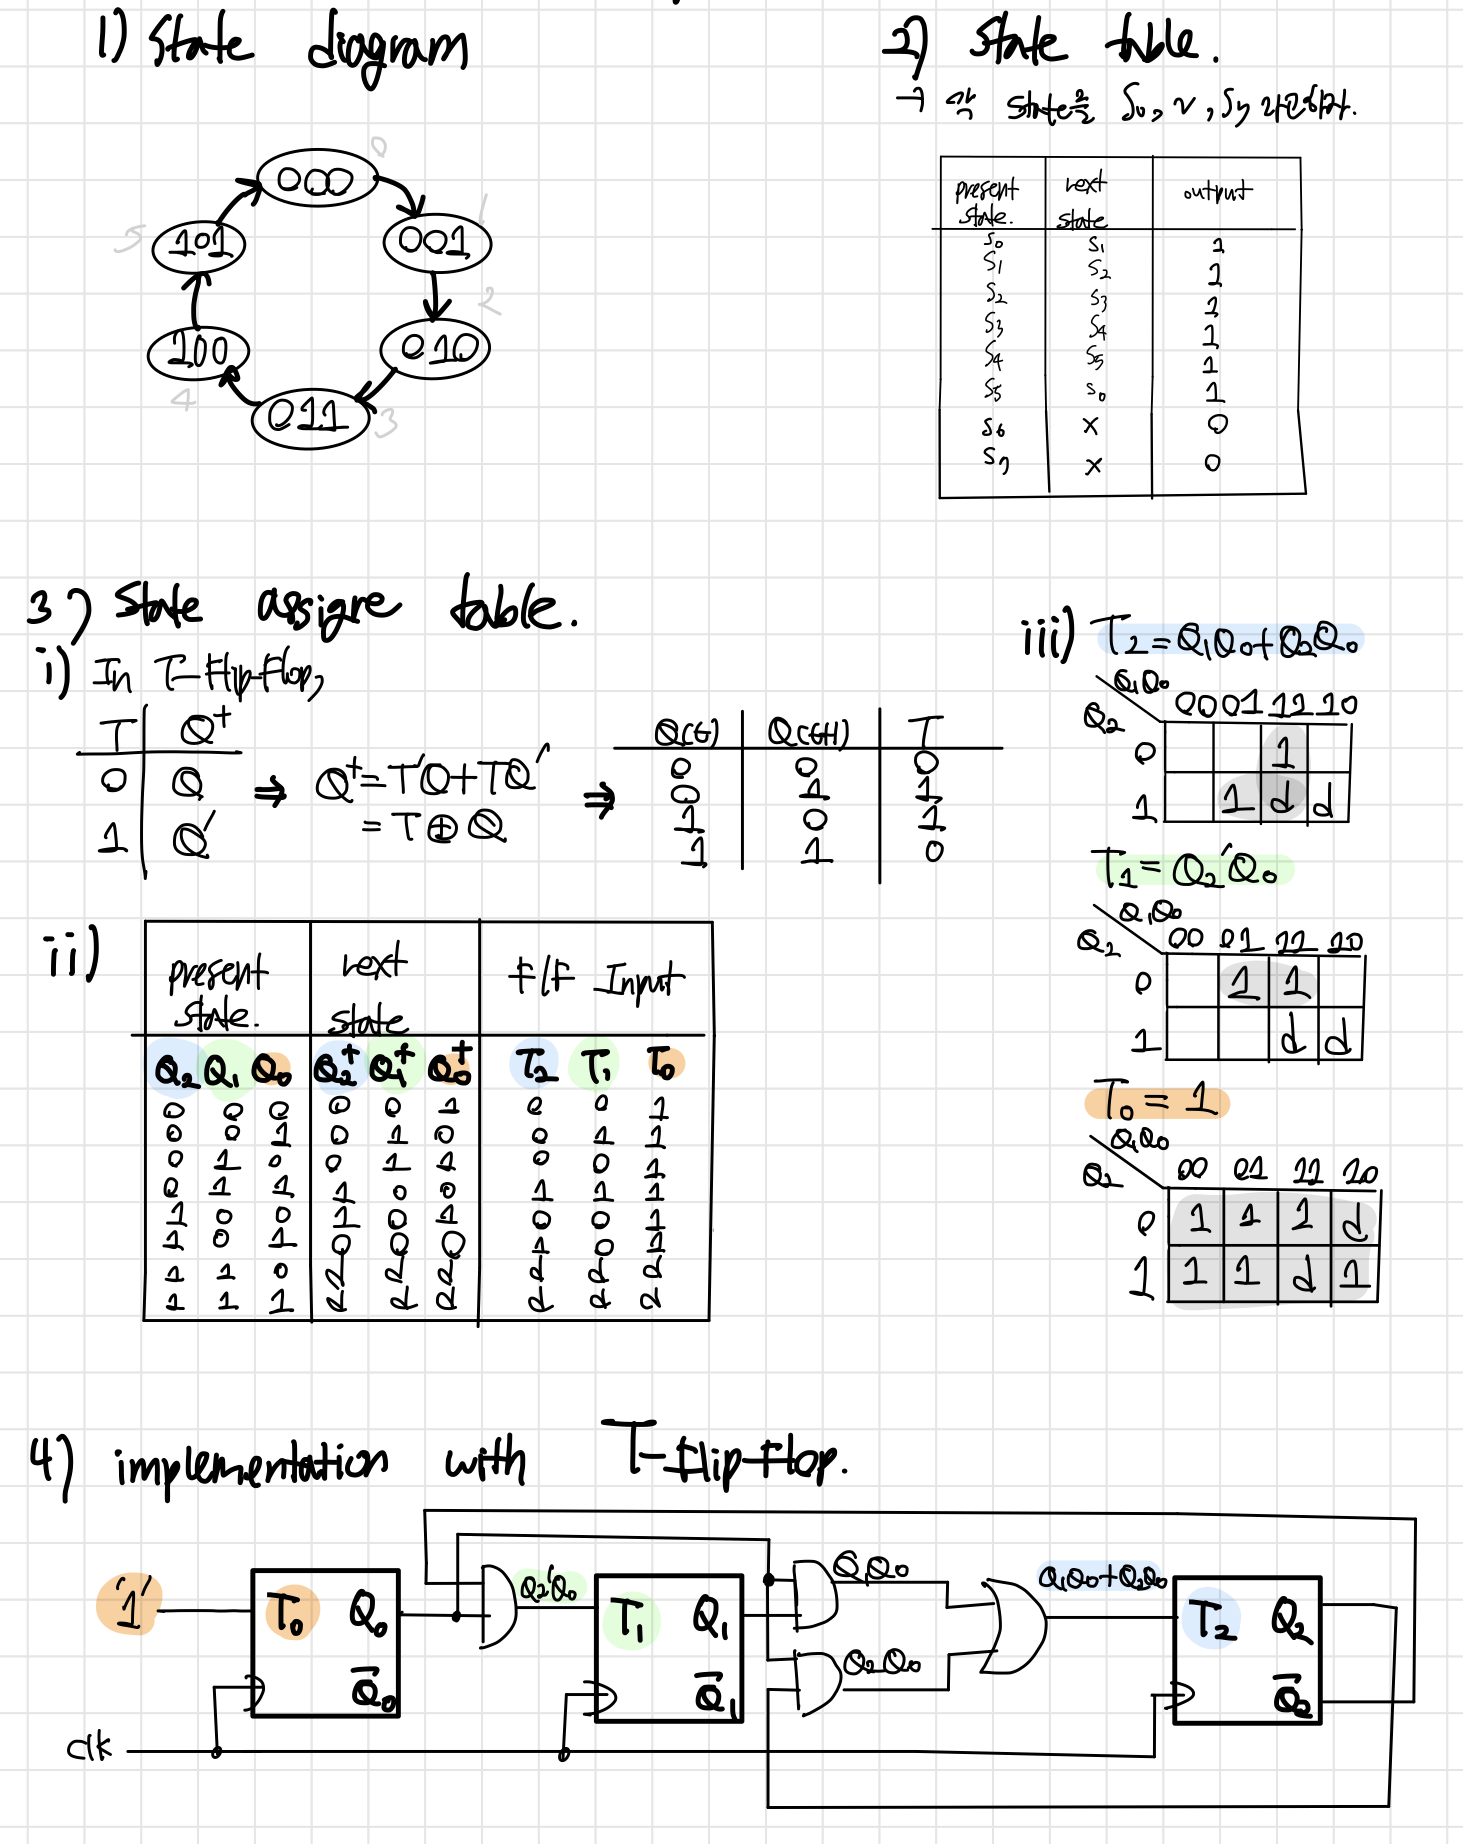 1) state diagram
000
0
001
1
010
2
011
3
100
4
101
5
2) state table.
→ 각 state를 S₀, ~, S₇
present state. | next state | output
S₀ S₁ 1
S₁ S₂ 1
S₂ S₃ 1
S₃ S₄ 1
S₄ S₅ 1
S₅ S₀ 1
S₆ X 0
S₇ X 0
3) state assigne table.
i) In T-flip-flop,
T Q⁺
0 Q
1 Q'
⇒ Q⁺ = T'Q + TQ'
= T⊕Q
⇒
Q(t) Q(t+1) T
0 0 0
0 1 1
1 0 1
1 1 0
ii)
present state. | next state | F/F Input
Q₂ Q₁ Q₀ Q₂⁺ Q₁⁺ Q₀⁺ T₂ T₁ T₀
0 0 0 0 0 1 0 0 1
0 0 1 0 1 0 0 1 1
0 1 0 0 1 1 0 0 1
0 1 1 1 0 0 1 1 1
1 0 0 1 0 1 0 0 1
1 0 1 0 0 0 1 0 1
1 1 0 d d d d d d
1 1 1 d d d d d d
iii) T₂ = Q₁Q₀ + Q₂Q₀
Q₁Q₀
Q₂ 00 01 11 10
0 1
1 1 d d
T₁ = Q₂'Q₀
Q₁Q₀
Q₂ 00 01 11 10
0 1 1
1 d d
T₀ = 1
Q₁Q₀
Q₂ 00 01 11 10
0 1 1 1 d
1 1 1 d 1
4) implementation with T-flip-flop.
'1'
T₀ Q₀
Q̅₀
Q₂'Q₀
T₁ Q₁
Q̅₁
Q₁Q₀
Q₂Q₀
Q₁Q₀+Q₂Q₀
T₂ Q₂
Q̅₂
clk